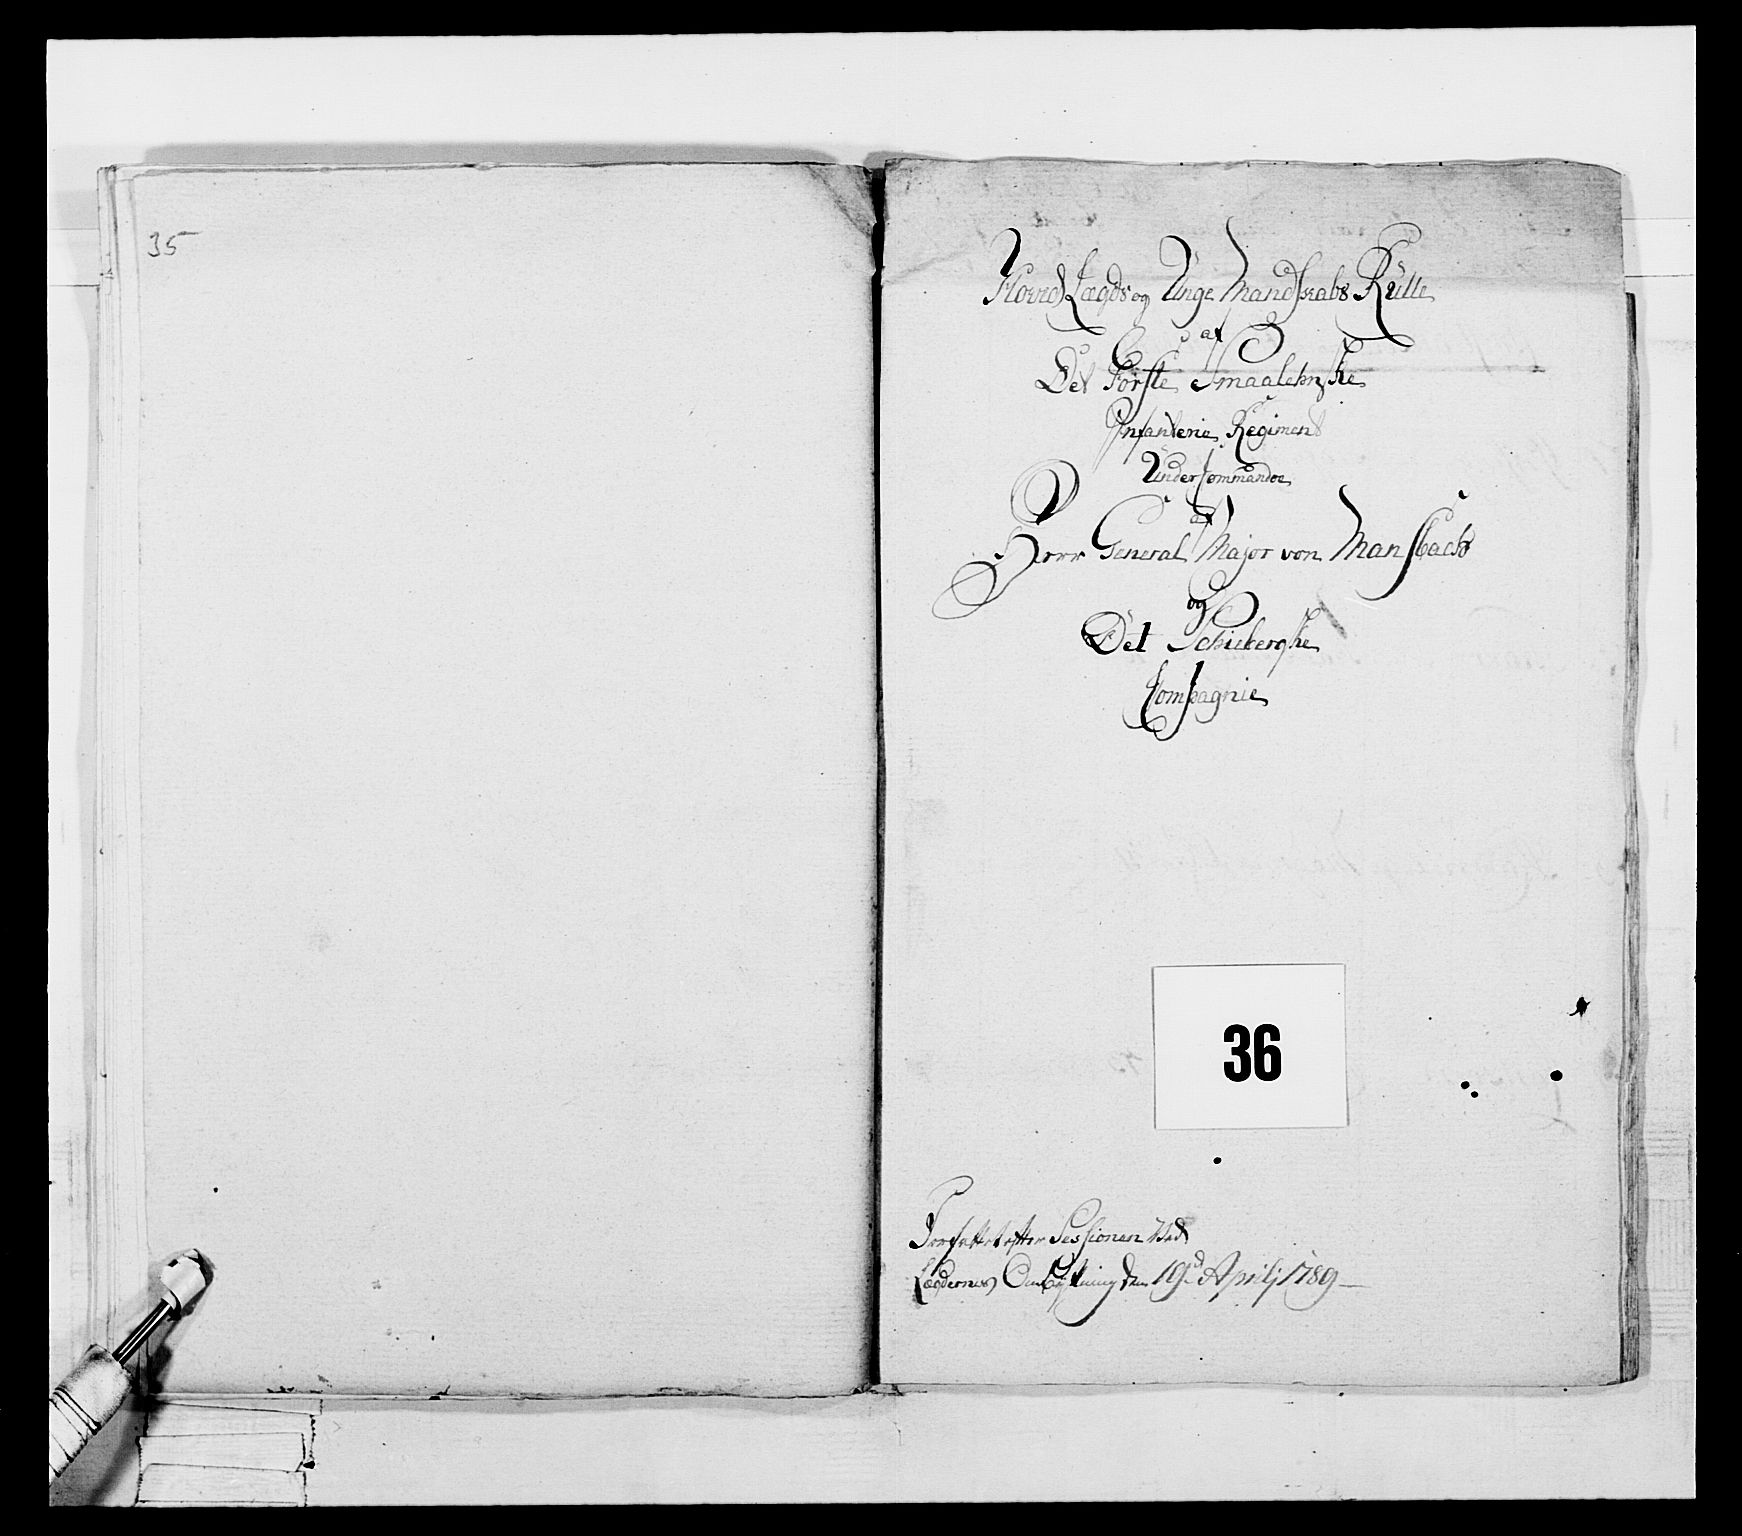 35
Hoved Lægds og Unge Mandskabs Rulle
af
Det Første Smaalehnske
Infanterie Regiment
Under Commandoe
af
Herr General Major von Mansbachs
og
Det Schiebergske
Compagnie
36
Forfattet efter Sessionen Ved
Lægdernes Ombÿtning den 19de Aprilj 1789